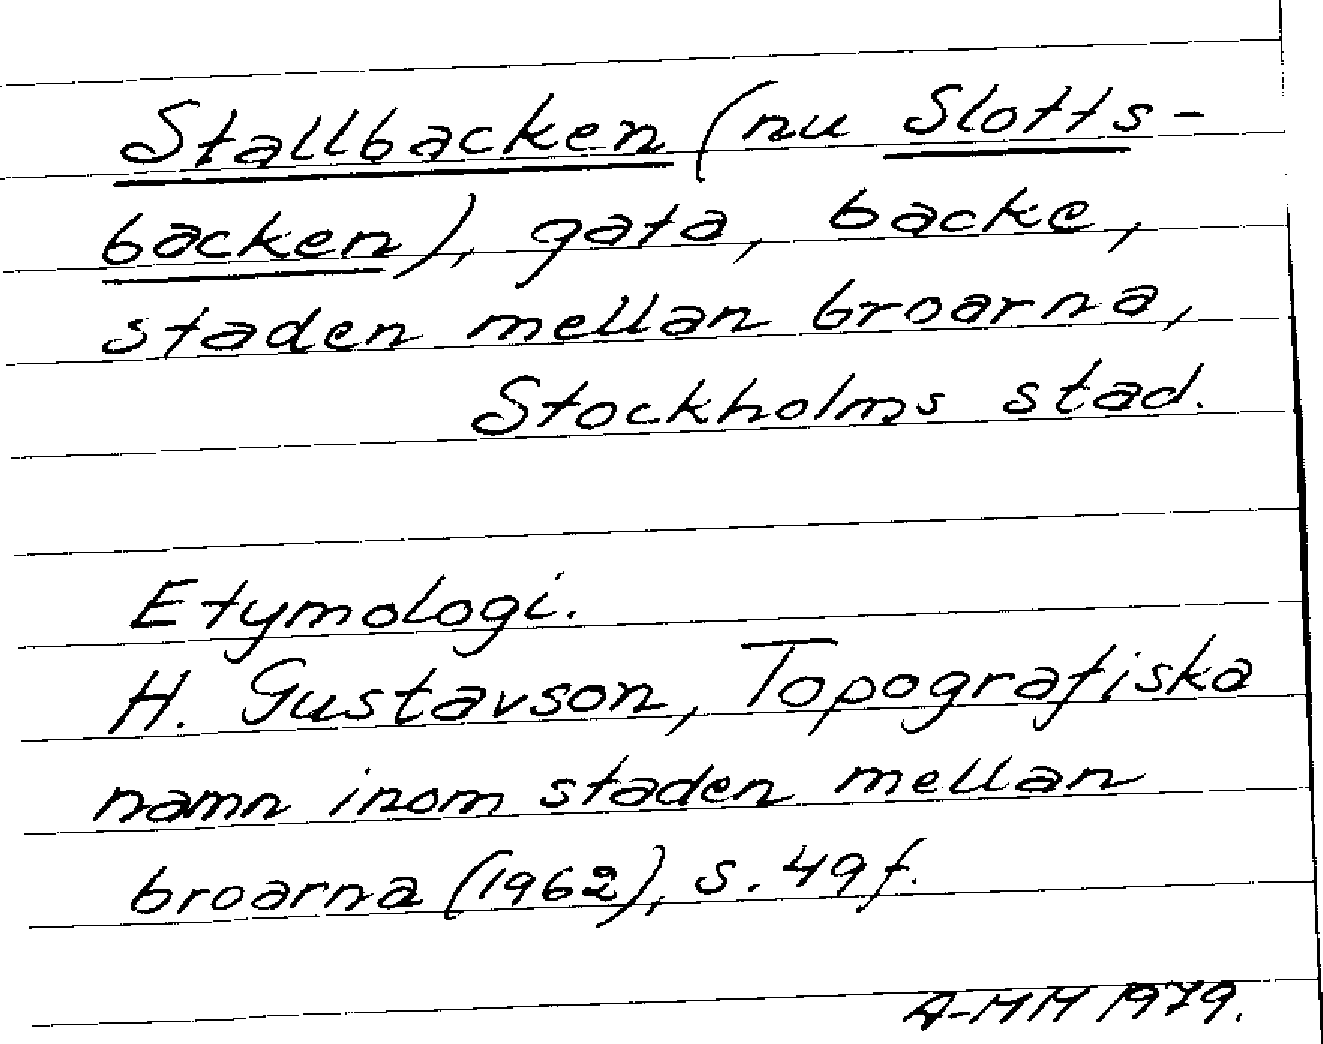 Stallbacken (nu Slotts-
backen), gata, backe,
staden mellan broarna,
Stockholms stad.
Etymologi.
H. Gustavson, Topografiska
namn inom staden mellan
broarna (1962), s. 49 f.
A-MH 1979.